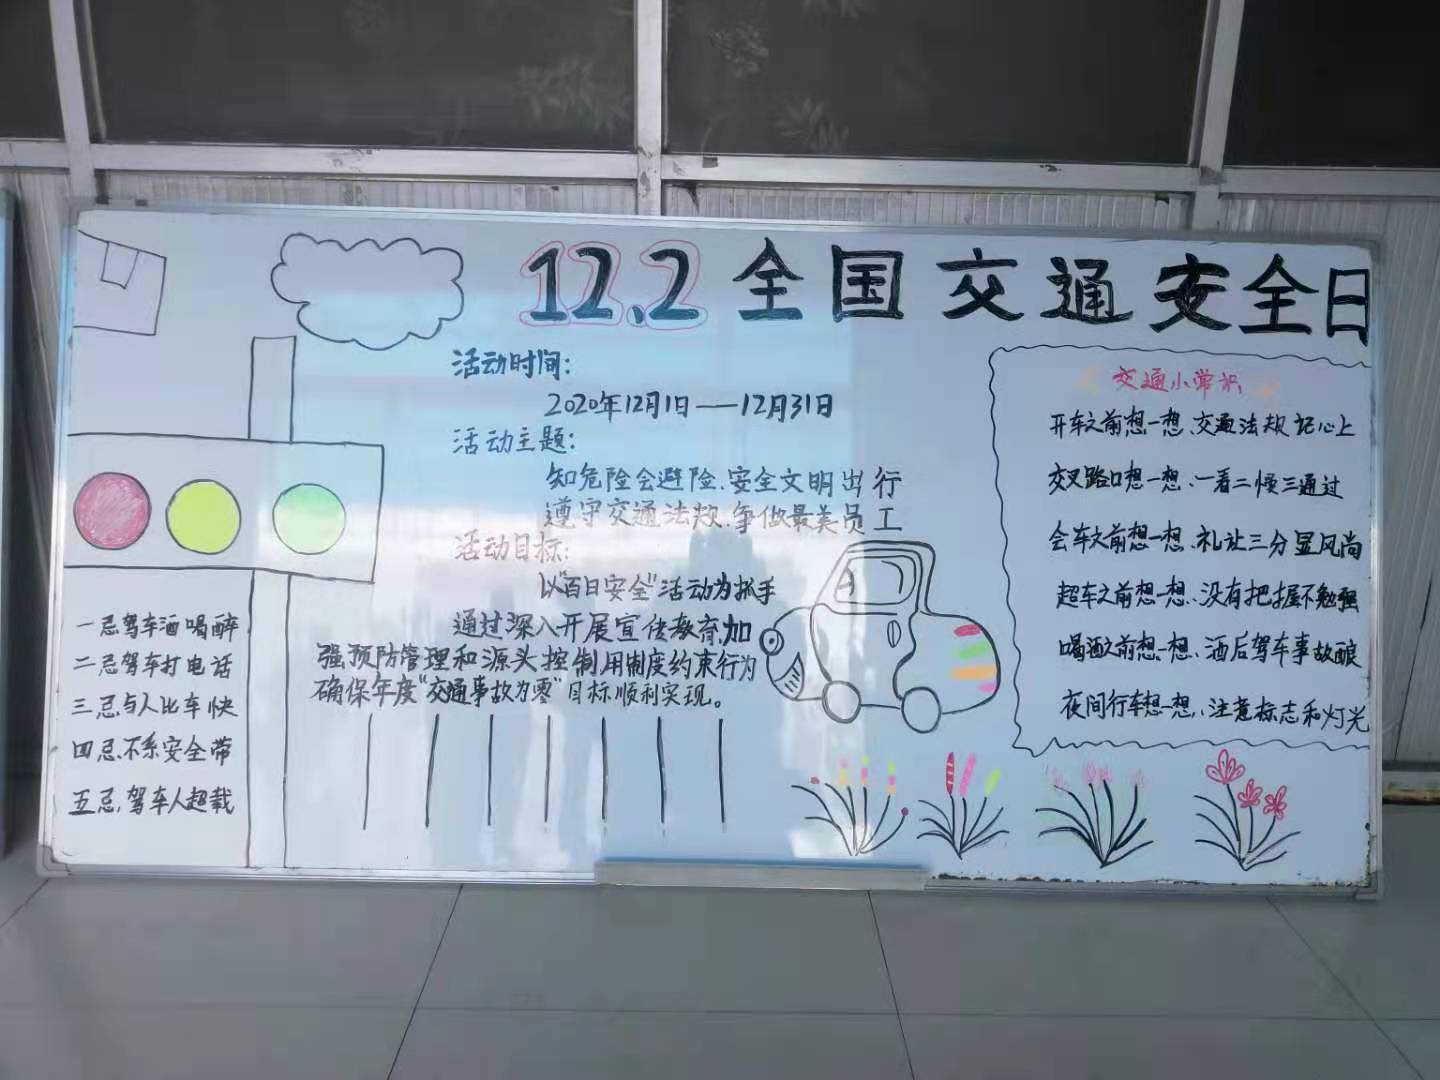 12.2全国交通安全日
活动时间:
2020年12月1日——12月31日
活动主题:
知危险会避险、安全文明出行
遵守交通法规、争做最美员工
活动目标:
以"百日安全"活动为抓手
通过深入开展宣传教育,加
强预防管理和源头控制用制度约束行为
确保年度"交通事故为零"目标顺利实现。
一忌驾车酒喝醉
二忌驾车打电话
三忌与人比车快
四忌、不系安全带
五忌,驾车人超载
交通小常识
开车之前想一想、交通法规记心上
交叉路口想一想、一看二慢三通过
会车之前想一想、礼让三分显风尚
超车之前想一想、没有把握不勉强
喝酒之前想一想、酒后驾车事故酿
夜间行车想一想、注意标志和灯光